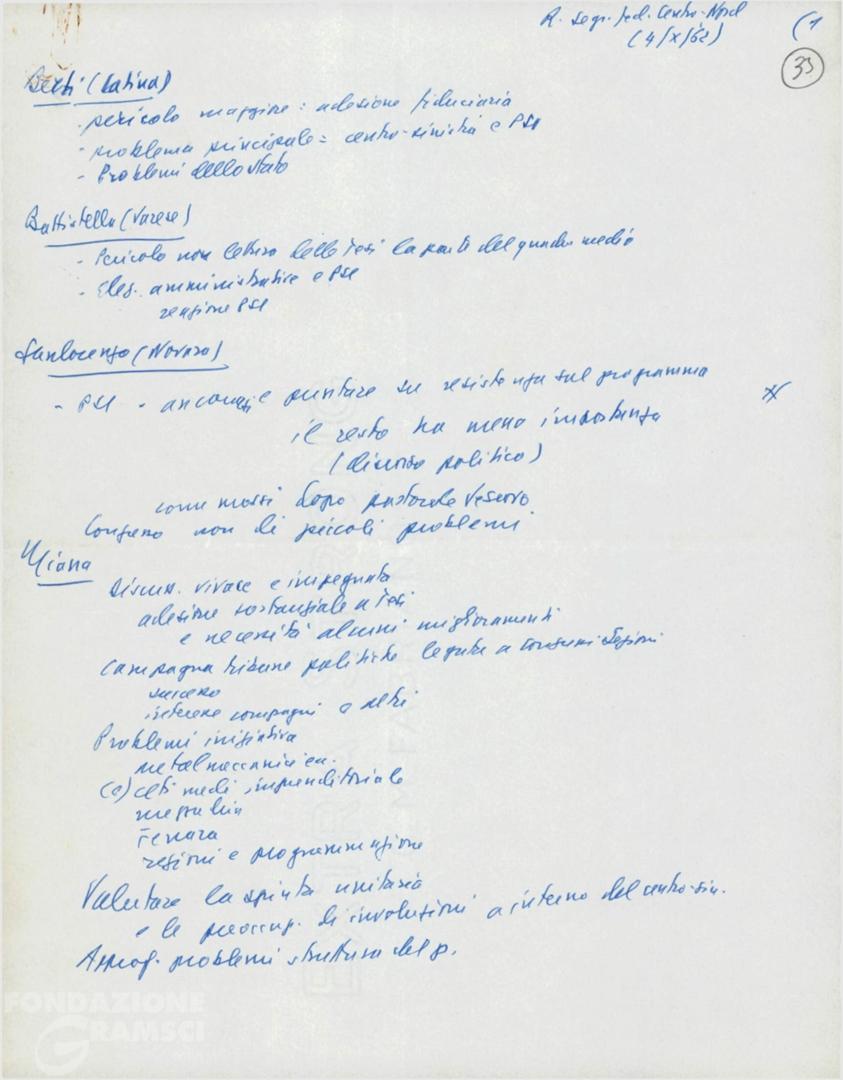 R. Segr. fed. Centro-Nord
(4/X/62)
(1
33
Berti (Latina)
- pericolo maggiore: adesione fiduciaria
- problema principale = centro-sinistra e PSI
- Problemi dello stato
Battistella (Varese)
- Pericolo non lettura delle Tesi da parte del quadro medio
- Elez. amministrative e PSI
reazione PSI
Sanlorenzo (Novara)
- PSI - e puntare su resistenza sul programma
il resto ha meno importanza
(discorso politico)
come mossi dopo pastorale Vescovo
Congresso non di piccoli problemi
Miana
Discuss. vivace e impegnata
adesione sostanziale a Tesi
e necessità alcuni miglioramenti
Campagna tribune politiche legate a Sezioni
successo
interesse compagni e altri
Problemi iniziativa
metalmeccanici ecc.
(a) ceti medi imprenditoriale
Ferrara
regioni e programmazione
Valutare la spinta unitaria
e le preoccup. di involuzioni a interno del centro-sin.
problemi struttura del p.
FONDAZIONE
GRAMSCI